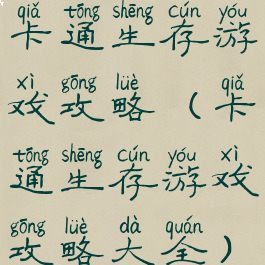 qiǎ tōng shēng cún yóu
卡通生存游
xì gōng lüè qiǎ
戏攻略（卡
tōng shēng cún yóu xì
通生存游戏
gōng lüè dà quán
攻略大全）